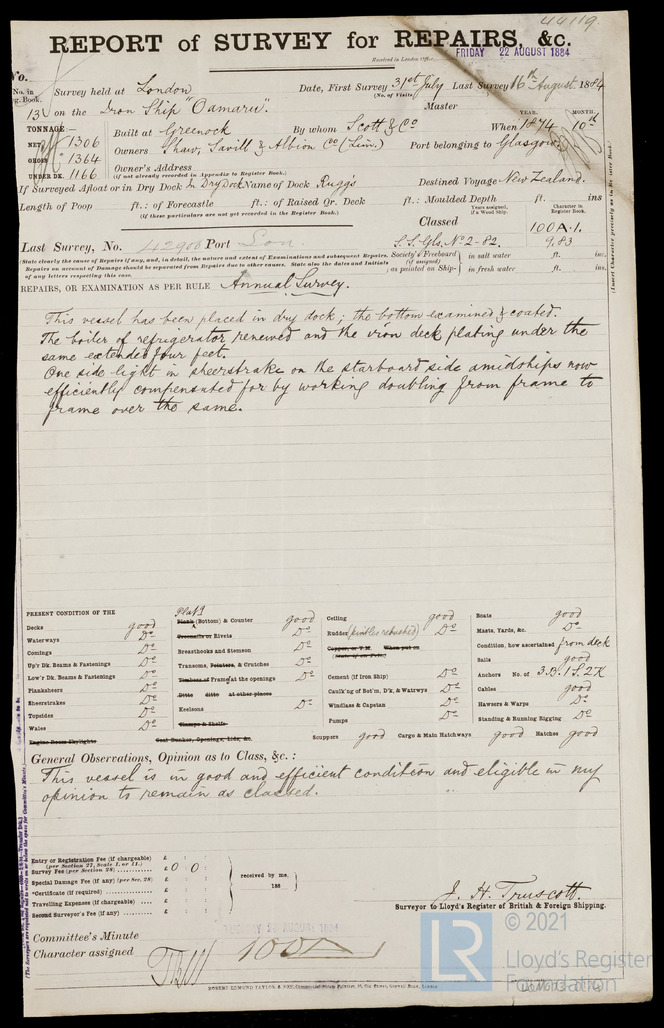 44119.
REPORT of SURVEY for REPAIRS, &c.
Received in London Office,
FRIDAY 22 AUGUST 1884
No.
No. in Survey held at London Date, First Survey 31st July Last Survey 16th August 1884
Reg. Book. (No. of Visits) Master
13 on the Iron Ship "Oamaru".
YEAR. MONTH.
TONNAGE:— Built at Greenock By whom Scott & Co When 1874 10th
NET 1306
Owners Shaw, Savill & Albion Coo (Lim.) Port belonging to Glasgow
GROSS 1364
Owner's Address
UNDER DK. 1166 (if not already recorded in Appendix to Register Book.)
If Surveyed Afloat or in Dry Dock In Dry Dock Name of Dock Rugg's Destined Voyage New Zealand.
Length of Poop ft.: of Forecastle ft.: of Raised Qr. Deck ft.: Moulded Depth ft. ins
(if these particulars are not yet recorded in the Register Book.) Years assigned, if a Wood Ship. Character in Register Book.
Classed 100A.1.
Last Survey, No. 42900 Port Lon. S.S. Gls. No 2-82. 9,83
(State clearly the cause of Repairs if any, and, in detail, the nature and extent of Examinations and subsequent Repairs.
Repairs on account of Damage should be separated from Repairs due to other causes. State also the dates and Initials
of any letters respecting this case.
Society's Freeboard (if assigned) as painted on Ship- in salt water ft. ins.
in fresh water ft. ins.
REPAIRS, OR EXAMINATION AS PER RULE Annual Survey.
This vessel has been placed in dry dock; the bottom examined & coated.
The boiler of refrigerator renewed and the iron deck plating under the
same extended four feet.
One side light in sheerstrake on the starboard side amidships now
efficiently compensated for by working doubling from frame to
frame over the same.
PRESENT CONDITION OF THE
Decks good
Waterways Do
Comings Do
Up'r Dk. Beams & Fastenings Do
Low'r Dk. Beams & Fastenings Do
Planksheers Do
Sheerstrakes Do
Topsides Do
Wales Do
Engine Room Skylights
Plat'g
Plank (Bottom) & Counter good
Treenails or Rivets Do
Breasthooks and Stemson Do
Transoms, Pointers, & Crutches Do
Timbers of Frame at the openings Do
Ditto ditto at other places
Keelsons Do
Clamps & Shelfs
Coal Bunker, Openings, Lids, &c.
Ceiling good
Rudder (pintles rebushed) Do
Copper, or Y.M. When put on
Cement (if Iron Ship) Do
Caulk'ng of Bot'm, D'k, & Watrwys Do
Windlass & Capstan Do
Pumps Do
Scuppers good Cargo & Main Hatchways good Hatches good
Boats good
Masts, Yards, &c. Do
Condition, how ascertained from deck
Sails good
Anchors No. of 3.B. 1S. 2K
Cables good
Hawsers & Warps Do
Standing & Running Rigging Do
General Observations, Opinion as to Class, &c.:
This vessel is in good and efficient condition and eligible in my
opinion to remain as classed.
Entry or Registration Fee (if chargeable) £ : :
(per Section 27, Scale I. or II.)
Survey Fee (per Section 28) £ 0 : 0 :
Special Damage Fee (if any) (per Sec. 28) £ : :
*Certificate (if required) £ : :
Travelling Expenses (if chargeable) £ : :
Second Surveyor's Fee (if any) £ : :
received by me,
188
J. H. Truscott.
Surveyor to Lloyd's Register of British & Foreign Shipping.
Committee's Minute TUESDAY 26 AUGUST 1884
Character assigned 100A
© 2021
LR Lloyd's Register
Foundation